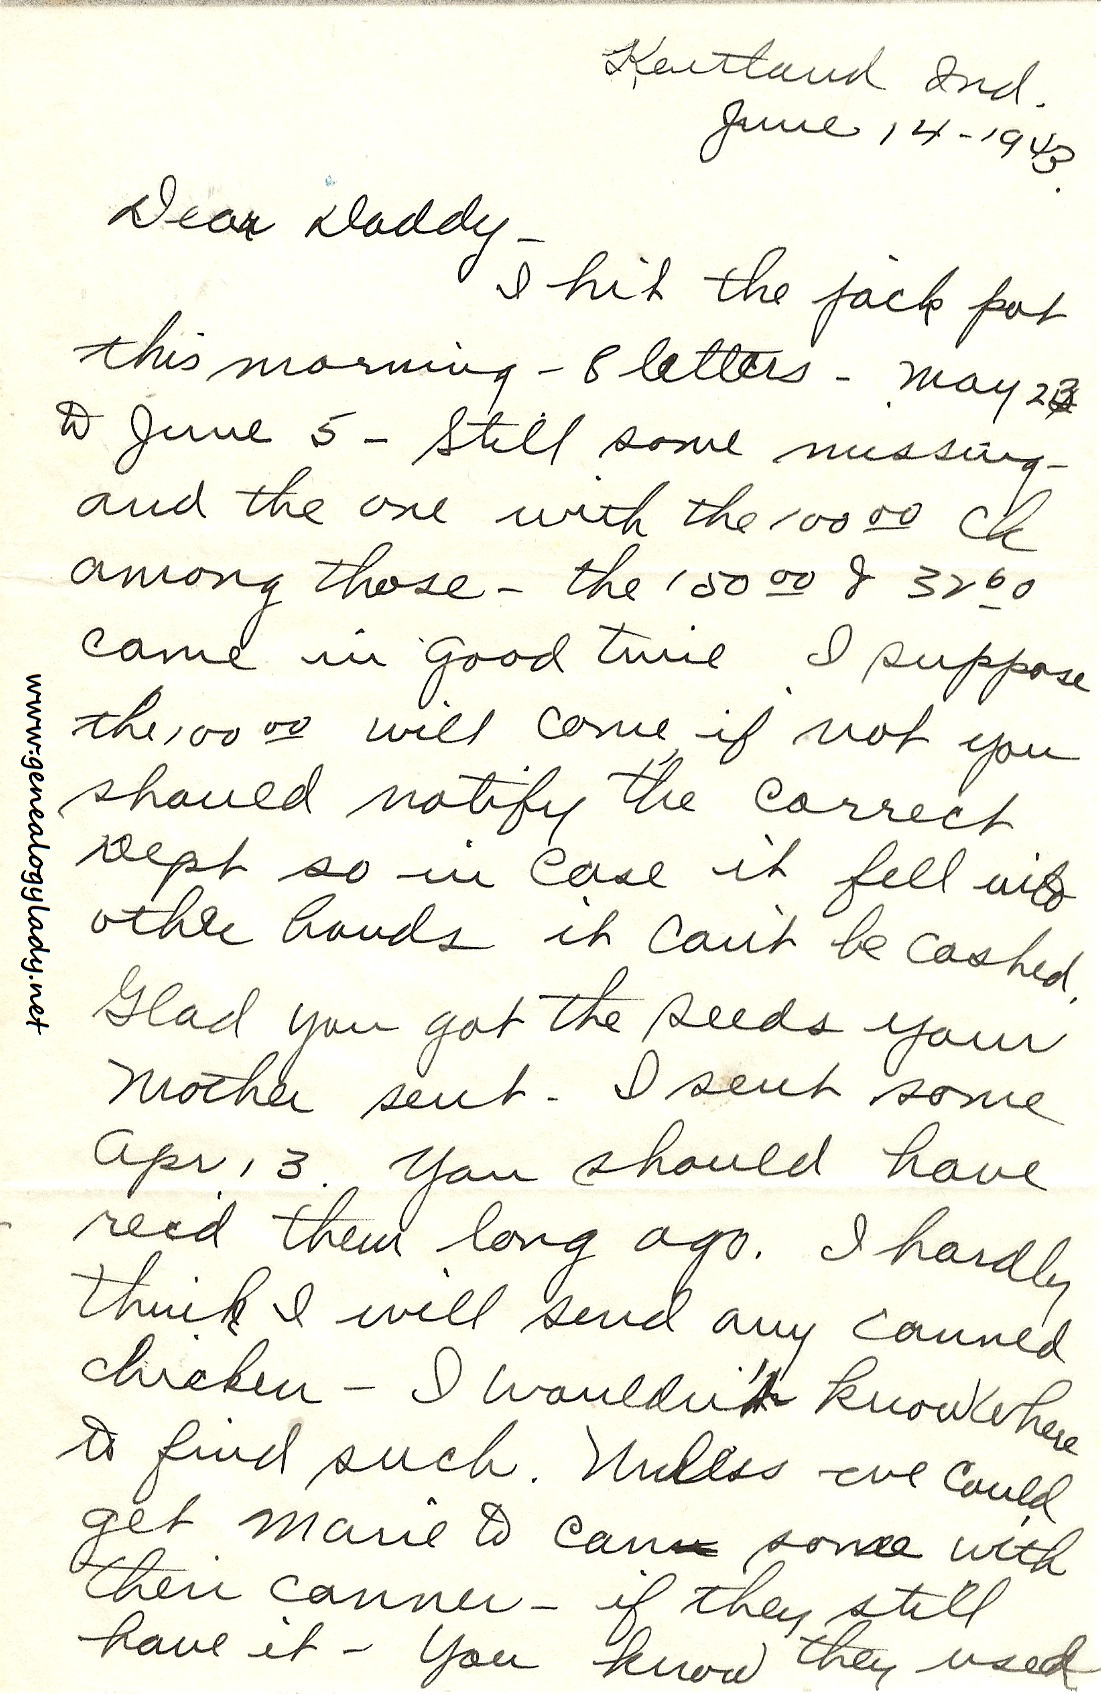 Kentland Ind.
June 14-1943.
Dear Daddy -
I hit the jack pot
this morning - 8 letters - May 23
to June 5 - Still some missing -
and the one with the 100 00 ck
among those - the 150 00 & 32 60
came in good time I suppose
the 100 00 will come, if not you
should notify the correct
Dept so in case it fell into
other hands it can't be cashed.
Glad you got the seeds your
Mother sent - I sent some
Apr 13. You should have
recd them long ago. I hardly
think I will send any canned
chicken - I wouldn't know where
to find such. Unless we could
get Marie to can some with
their canner - if they still
have it - You know they used
www.genealogylady.net